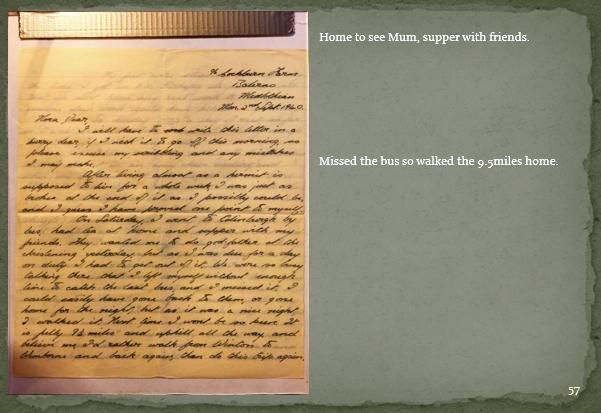 ℅ Cockburn Farm
Balerno
Midlothian
Mon. 2nd Sept. 1940.
Nora Dear,
I will have to write this letter in a
hurry dear, if I wish it to go off this morning, so
please excuse my scribbling and any mistakes
I may make.
After living almost as a hermit is
supposed to live for a whole week, I was just as
broke at the end of it as I possibly could be,
and I guess I have proved one point to myself.
On Saturday, I went to Edinburgh by
bus, had tea at home and supper with my
friends. They wanted me to do godfather at the
christening yesterday, but as I was due for a day
on duty I had to get out of it. We were so busy
talking there that I left myself without enough
time to catch the last bus, and I missed it. I
could easily have gone back to them, or gone
home for the night, but as it was a nice night
I walked it. Next time I wont be so brave. It
is fully 9½ miles and uphill all the way and
believe me, I'd rather walk from Winton to
Wimborne and back again than do this trip again.
Home to see Mum, supper with friends.
Missed the bus so walked the 9.5miles home.
57